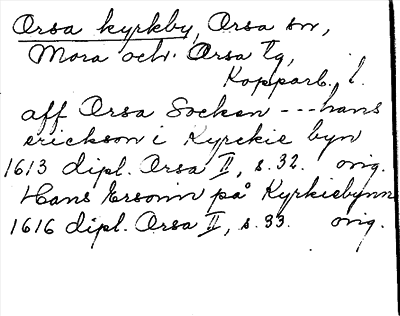 Orsa kyrkby, Orsa sn,
Mora och Orsa tg,
Kopparb. l.
aff Orsa Socken --- hans
erickson i Kyrckie byn
1613 dipl. Orsa II, s. 32. orig.
Hans Ersonn på Kyrkiebynn
1616 dipl. Orsa II, s. 33. orig.